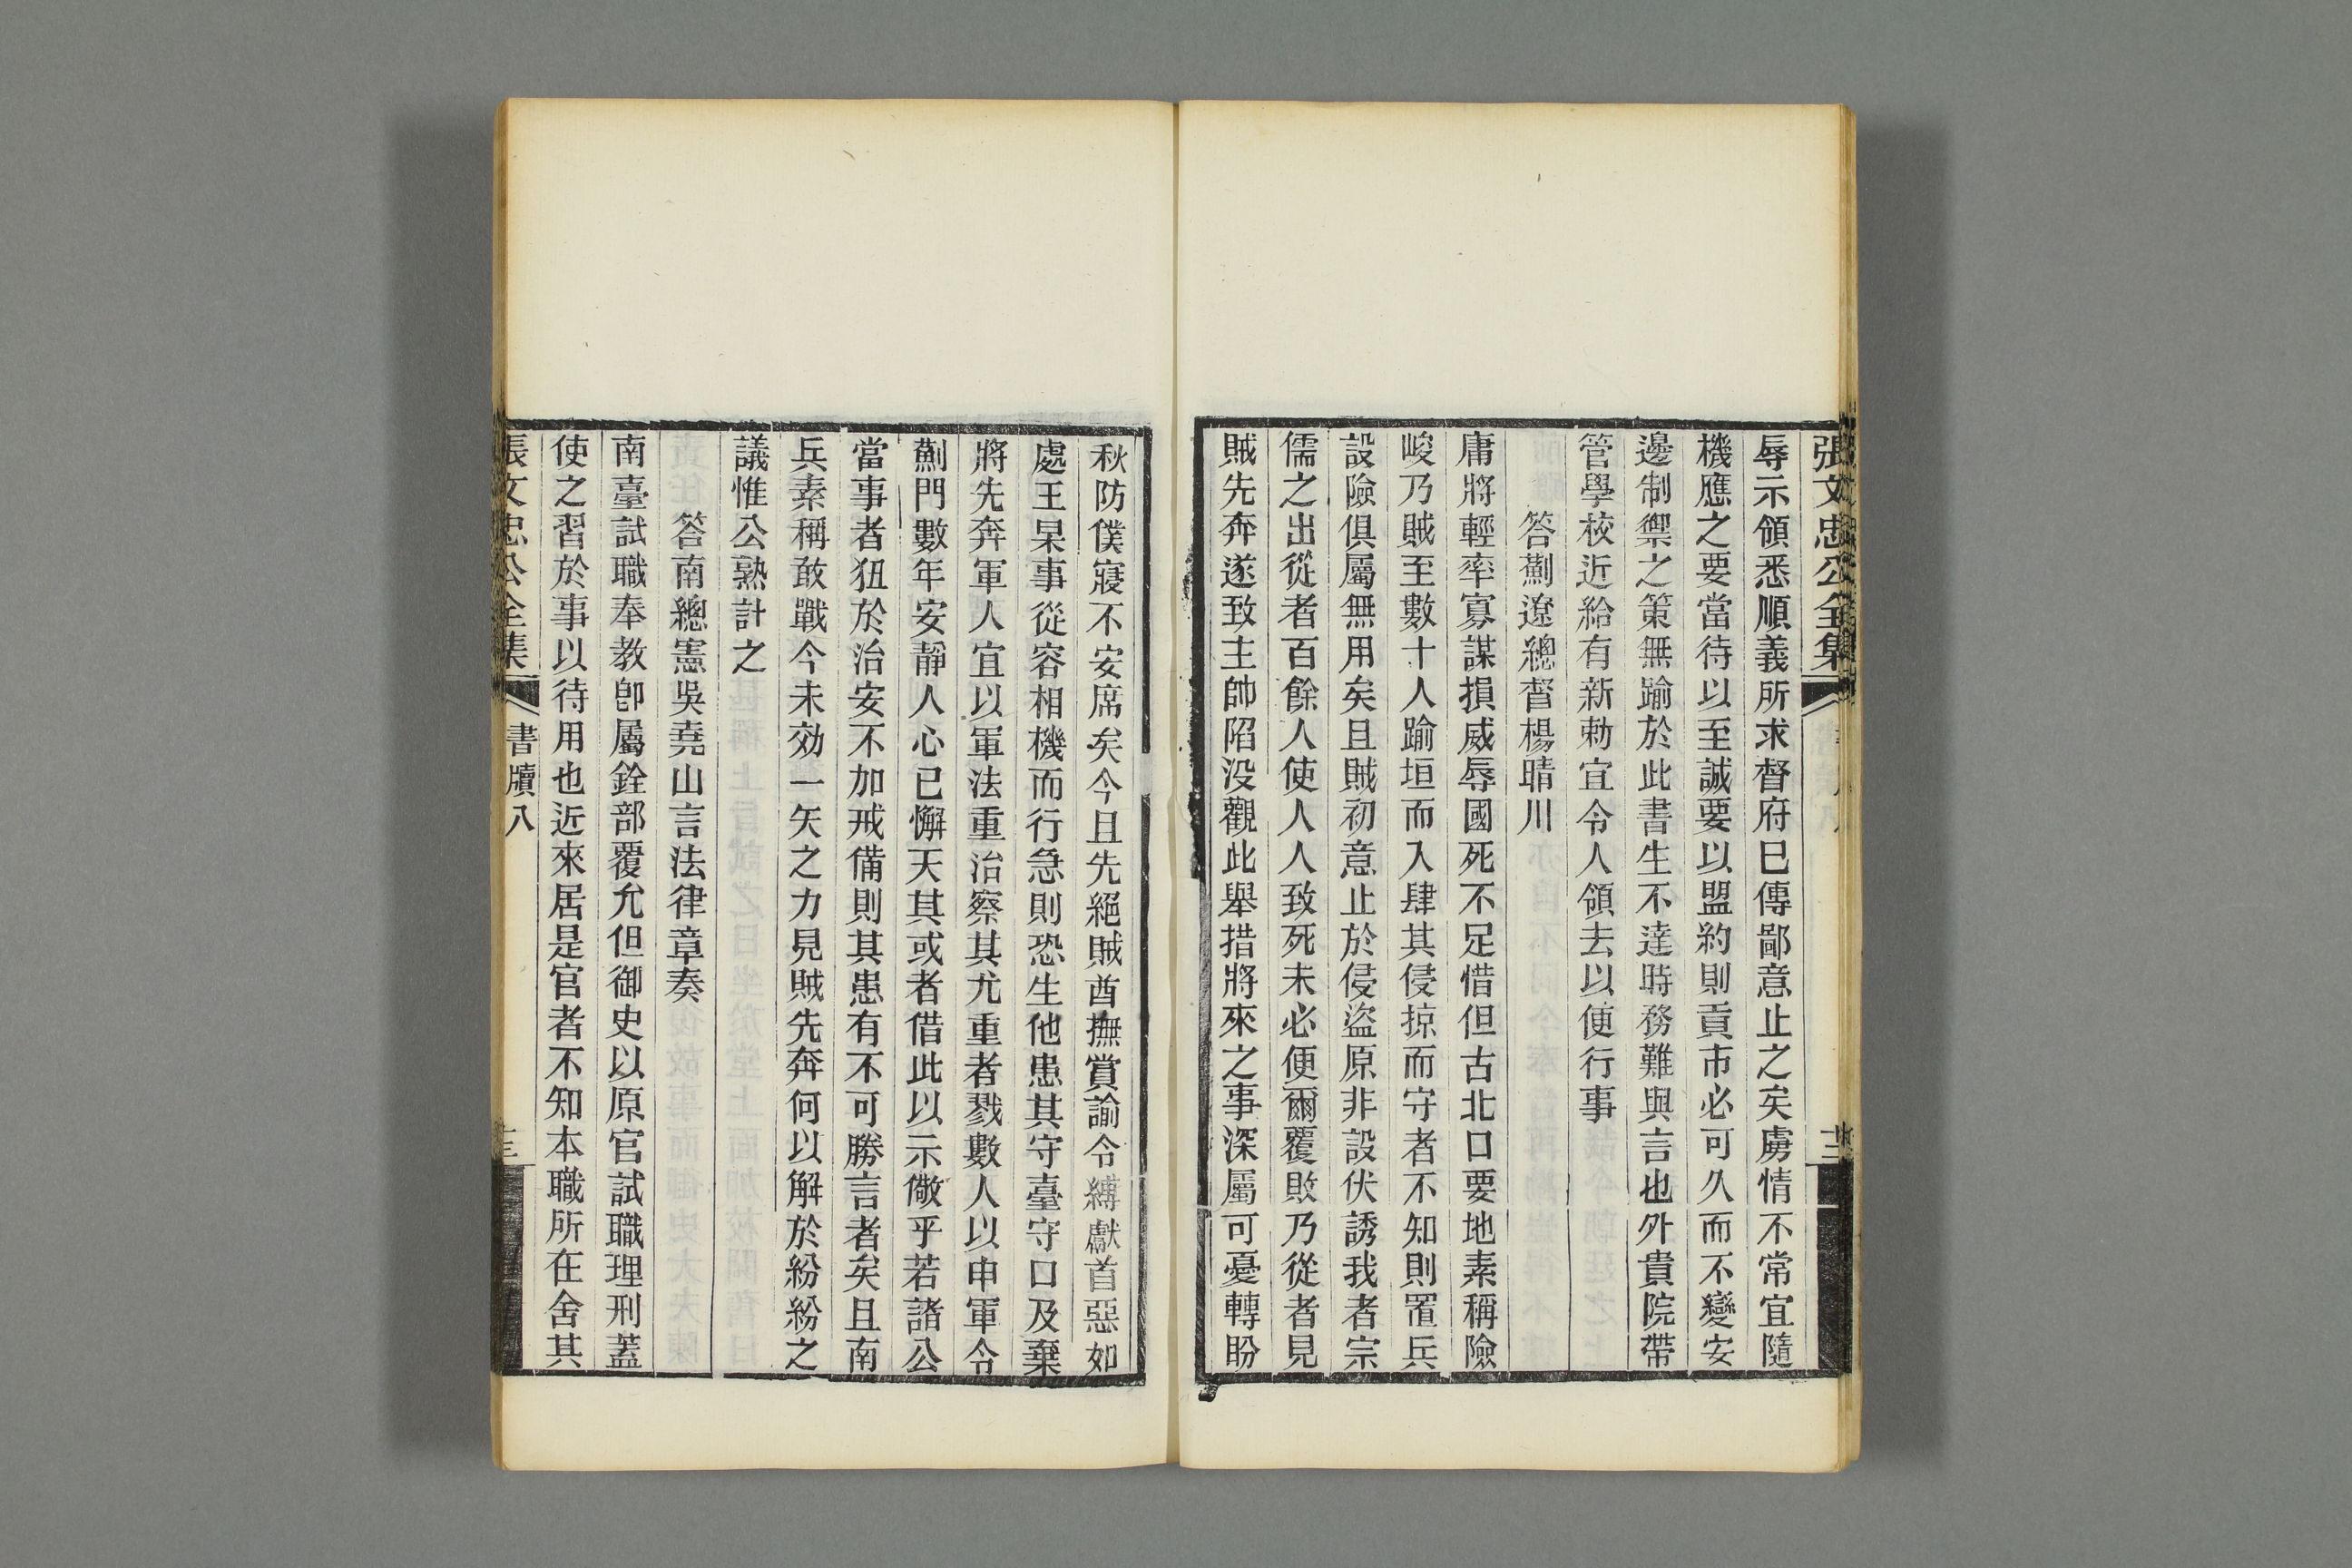 張文忠公全集
辱示領悉順義所求督府已傳鄙意止之矣虜情不常宜隨
機應之要當待以至誠要以盟約則貢市必可久而不變安
邊制禦之策無踰於此書生不達時務難與言也外貴院帶
管學校近給有新勅宜令人領去以便行事
答薊遼總督楊晴川
庸將輕率寡謀損威辱國死不足惜但古北口要地素稱險
峻乃賊至數十人踰垣而入肆其侵掠而守者不知則置兵
設險俱屬無用矣且賊初意止於侵盜原非設伏誘我者宗
儒之出從者百餘人使人人致死未必便爾覆敗乃從者見
賊先奔遂致主帥陷没觀此舉措將來之事深屬可憂轉盼
秋防僕寢不安席矣今且先絕賊酋撫賞諭令縛獻首惡如
處王杲事從容相機而行急則恐生他患其守臺守口及棄
將先奔軍人宜以軍法重治察其尤重者戮數人以申軍令
薊門數年安靜人心已懈天其或者借此以示儆乎若諸公
當事者狃於治安不加戒備則其患有不可勝言者矣且南
兵素稱敢戰今未効一矢之力見賊先奔何以解於紛紛之
議惟公熟計之
答南總憲吳堯山言法律章奏
南臺試職奉教卽屬銓部覆允但御史以原官試職理刑蓋
使之習於事以待用也近來居是官者不知本職所在舍其
張文忠公全集 書牘八